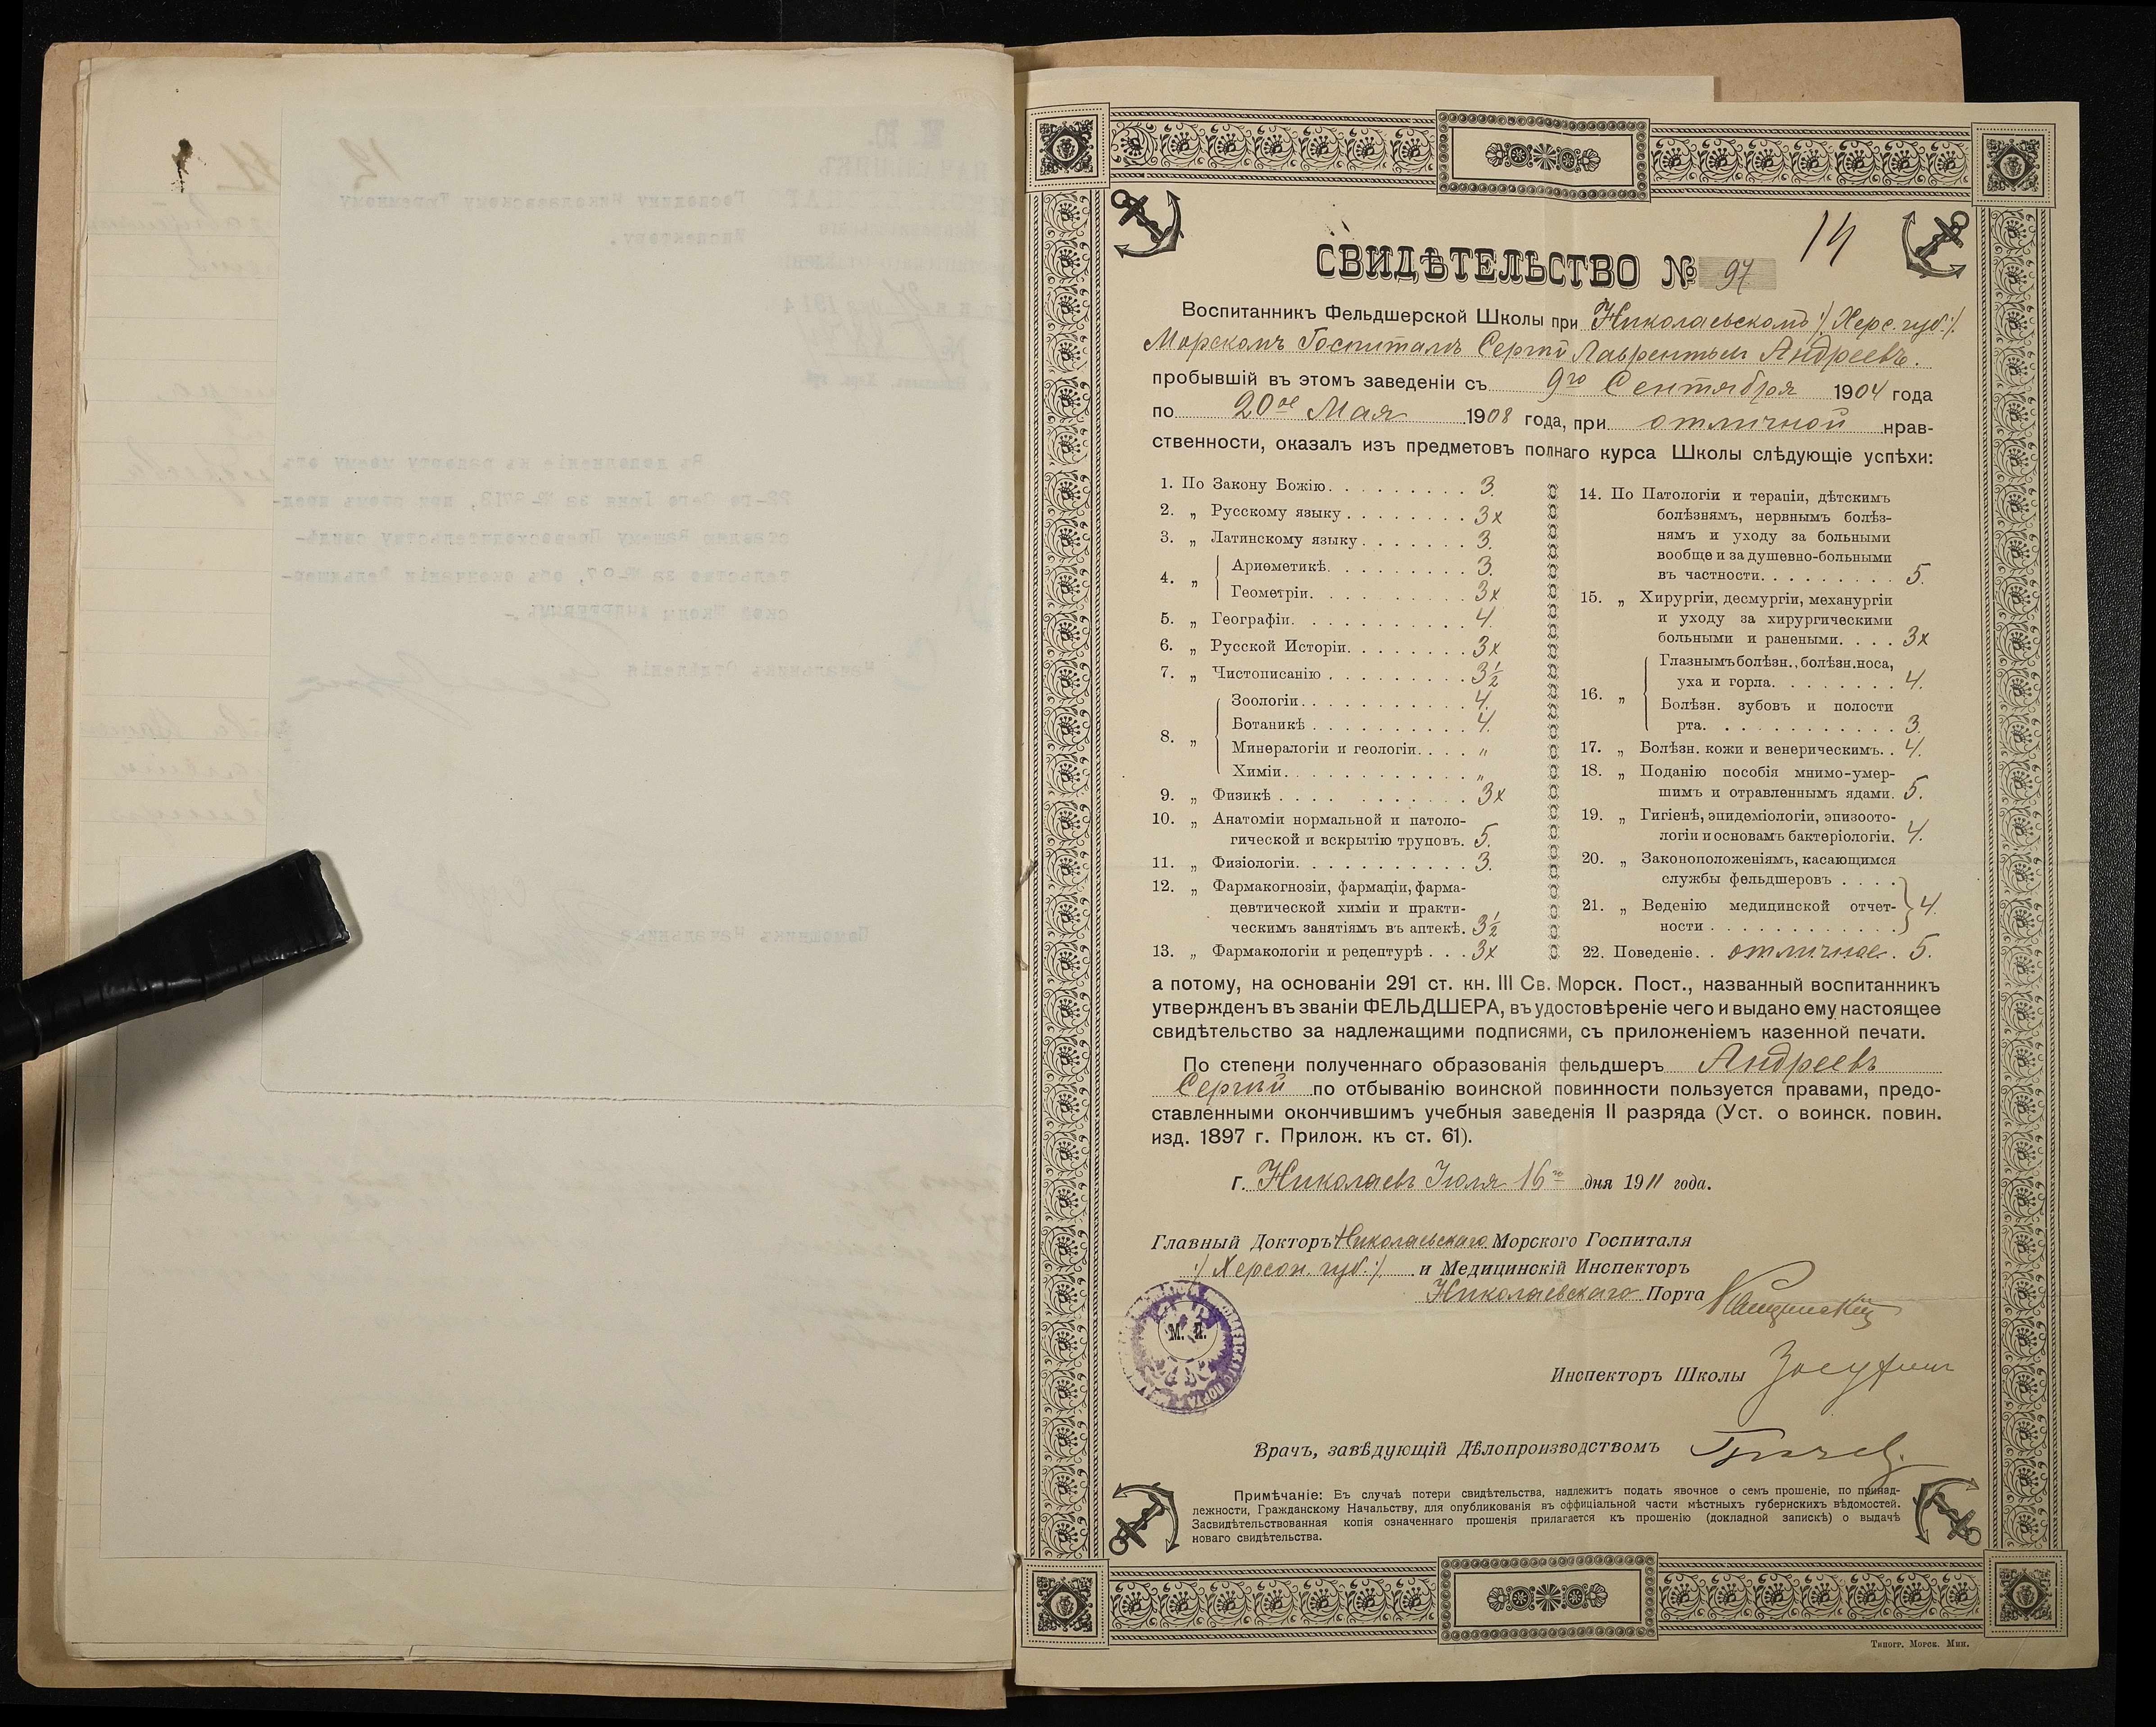 14
СВИДѢТЕЛЬСТВО № 97
Воспитанникъ Фельдшерской Школы при Николаевскомъ /: Херс. губ. :/
Морскомъ Госпиталѣ Сергѣй Лаврентьевъ Андреевъ.
пробывшій въ этомъ заведеніи съ 9го Сентября 1904 года
по 20ое Мая 1908 года, при отличной нрав-
ственности, оказалъ изъ предметовъ полнаго курса Школы слѣдующіе успѣхи:
1. По Закону Божію. 3.
2. „ Русскому языку 3x
3. „ Латинскому языку. 3.
4. „ Ариѳметикѣ. 3.
Геометріи. 3x
5. „ Географіи. 4.
6. „ Русской Исторіи. 3x
7. „ Чистописанію 3½
8. „ Зоологіи. 4.
Ботаникѣ 4.
Минералогіи и геологіи. „
Химіи. „
9. „ Физикѣ 3x
10. „ Анатоміи нормальной и патоло-
гической и вскрытію труповъ. 5.
11. „ Физіологіи. 3.
12. „ Фармакогнозіи, фармаціи, фарма-
цевтической химіи и практи-
ческимъ занятіямъ въ аптекѣ. 3½
13. „ Фармакологіи и рецептурѣ 3x
14. По Патологіи и терапіи, дѣтскимъ
болѣзнямъ, нервнымъ болѣз-
нямъ и уходу за больными
вообще и за душевно-больными
въ частности. 5.
15. „ Хирургіи, десмургіи, механургіи
и уходу за хирургическими
больными и ранеными. 3x
16. „ Глазнымъ болѣзн., болѣзн. носа,
уха и горла. 4.
Болѣзн. зубовъ и полости
рта. 3.
17. „ Болѣзн. кожи и венерическимъ. 4.
18. „ Поданію пособія мнимо-умер-
шимъ и отравленнымъ ядами. 5.
19. „ Гигіенѣ, эпидеміологіи, эпизоото-
логіи и основамъ бактеріологіи. 4.
20. „ Законоположеніямъ, касающимся
службы фельдшеровъ
21. „ Веденію медицинской отчет- 4.
ности
22. Поведеніе. отличное. 5.
а потому, на основаніи 291 ст. кн. III Св. Морск. Пост., названный воспитанникъ
утвержденъ въ званіи ФЕЛЬДШЕРА, въ удостовѣреніе чего и выдано ему настоящее
свидѣтельство за надлежащими подписями, съ приложеніемъ казенной печати.
По степени полученнаго образованія фельдшеръ Андреевъ
Сергѣй по отбыванію воинской повинности пользуется правами, предо-
ставленными окончившимъ учебныя заведенія II разряда (Уст. о воинск. повин.
изд. 1897 г. Прилож. къ ст. 61).
г. Николаевъ Іюля 16го дня 1911 года.
Главный Докторъ Николаевскаго Морского Госпиталя
/: Херсон. губ. :/ и Медицинскій Инспекторъ
Николаевскаго Порта
М. П.
Инспекторъ Школы
Врачъ, завѣдующій Дѣлопроизводствомъ
Примѣчаніе: Въ случаѣ потери свидѣтельства, надлежитъ подать явочное о семъ прошеніе, по принад-
лежности, Гражданскому Начальству, для опубликованія въ оффиціальной части мѣстныхъ губернскихъ вѣдомостей.
Засвидѣтельствованная копія означеннаго прошенія прилагается къ прошенію (докладной запискѣ) о выдачѣ
новаго свидѣтельства.
Типогр. Морск. Мин.